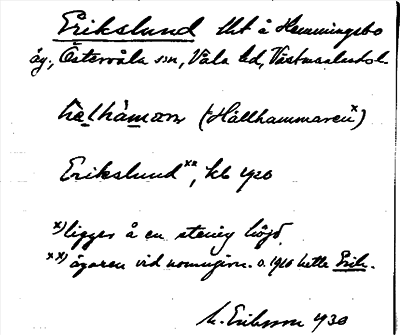 Erikslund tht å Hemmingsbo
äg., Östervåla sn, Våla hd, Västmanlands l.
(Hällhammaren x)
Erikslund xx, kb 1920
x) ligger å en stenig höjd.
xx) ägaren vid namngivn. o. 1910 hette Erik.
M. Eriksson 1930